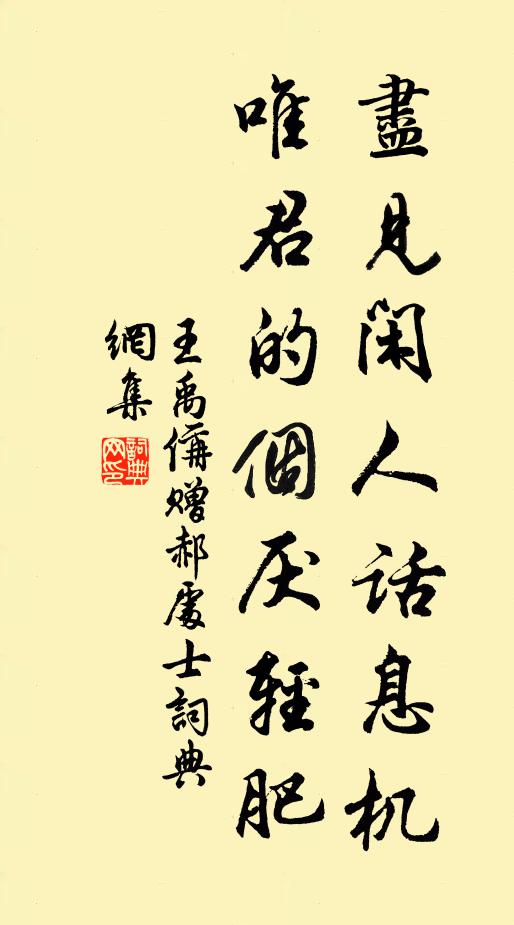 盡見閑人話息机
唯君的個厌輕肥
王禹偁贈郝處士詞典
網集
詞典网印